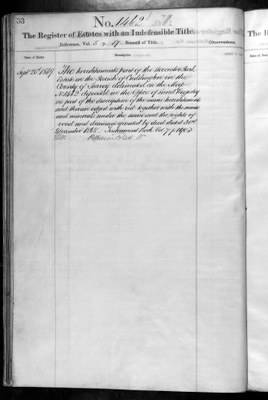 53
No. 1462
The Register of Estates with an Indefeasible Title.
Reference, Vol. 5 p. 17 Record of Title.
Observations.
Date of Entry
Description
Sept 28th 1869
The hereditaments part of the
Estate in the Parish of Cuddington in the
County of Surrey delineated on the Map
No 1462 deposited in the Office of Land Registry
as part of the description of the same hereditaments
and thereon edged with red together with the mines
and minerals under the same and the rights of
road and drainage granted by deed dated
December 1868. Instrument Book Vol 7 p
The R